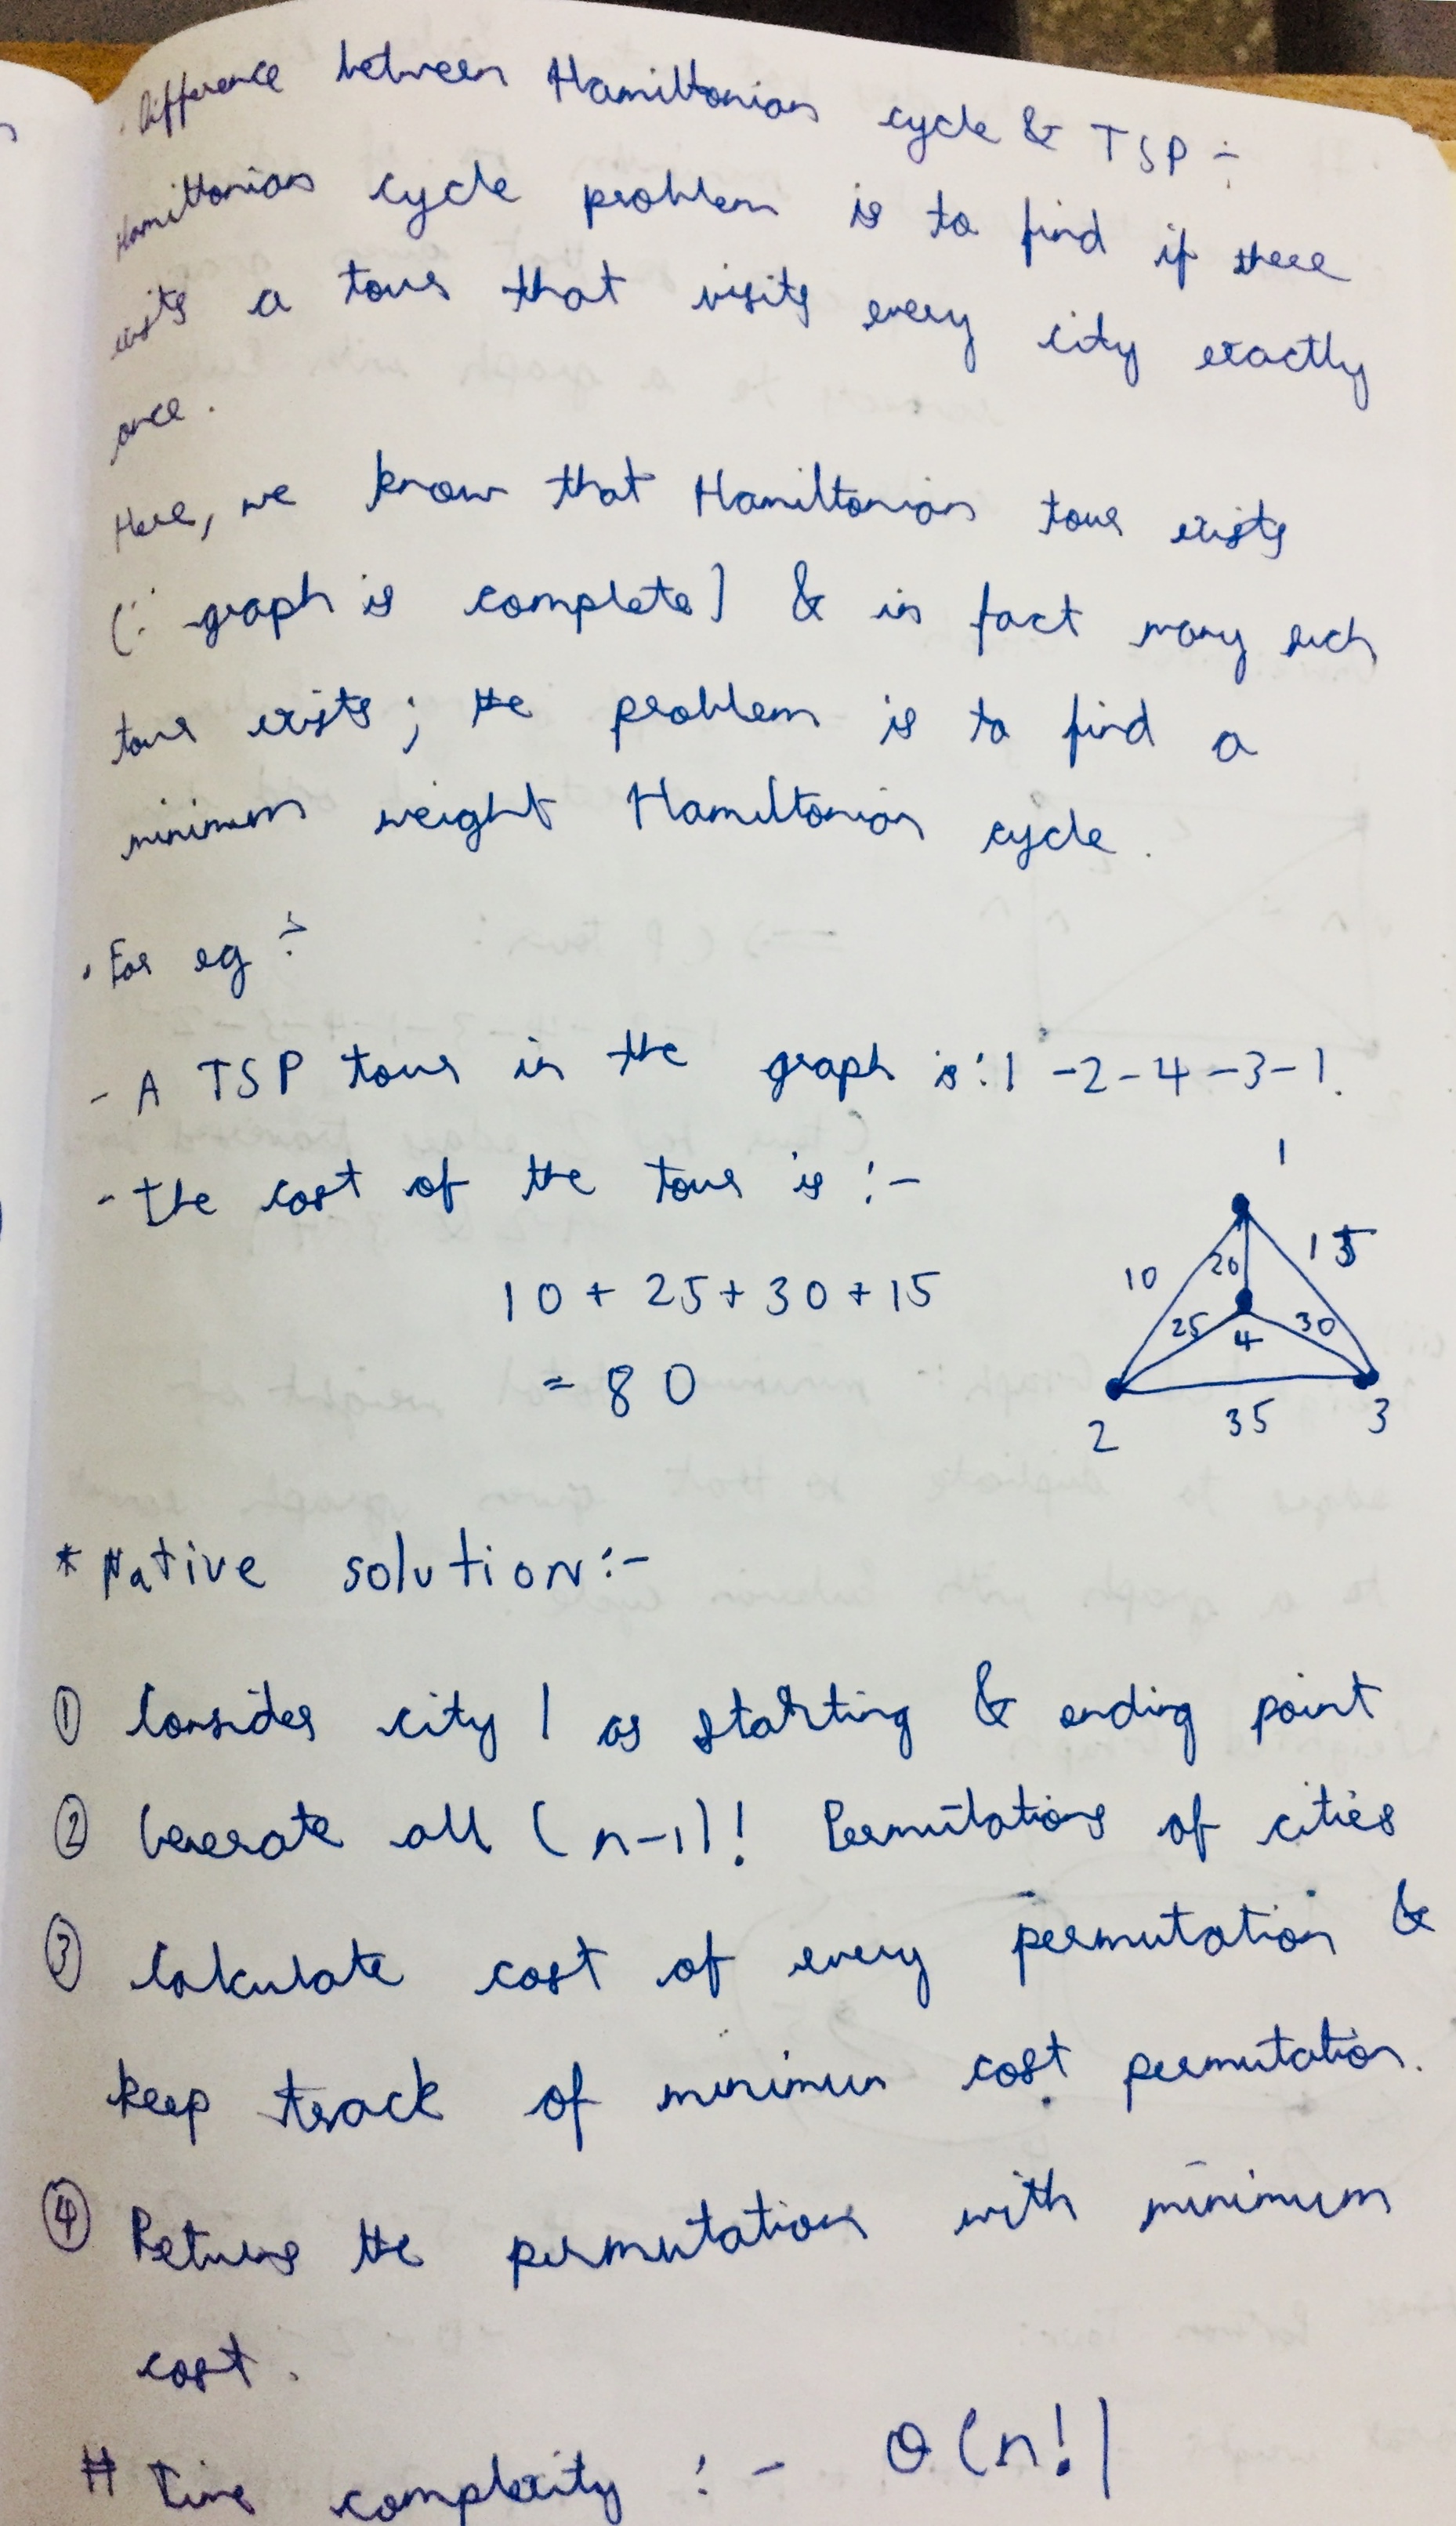 . Difference between Hamiltonian cycle & TSP :-
Hamiltonian cycle problem is to find if there
exists a tour that visits every city exactly
once.
Here, we know that Hamiltonian tour exists
(∵ graph is complete) & in fact many such
tour exists; the problem is to find a
minimum weight Hamiltonian cycle.
. For eg :-
- A TSP tour in the graph is: 1 -2-4-3-1.
- The cost of the tour is :-
10 + 25 + 30 + 15
= 80
1
10 20 15
25 4 30
2 35 3
* Native solution:-
① Consider city 1 as starting & ending point
② Generate all (n-1)! Permutations of cities
③ Calculate cost of every permutation &
keep track of minimum cost permutation.
④ Returns the permutation with minimum
cost.
# Time complexity :- Θ(n!)